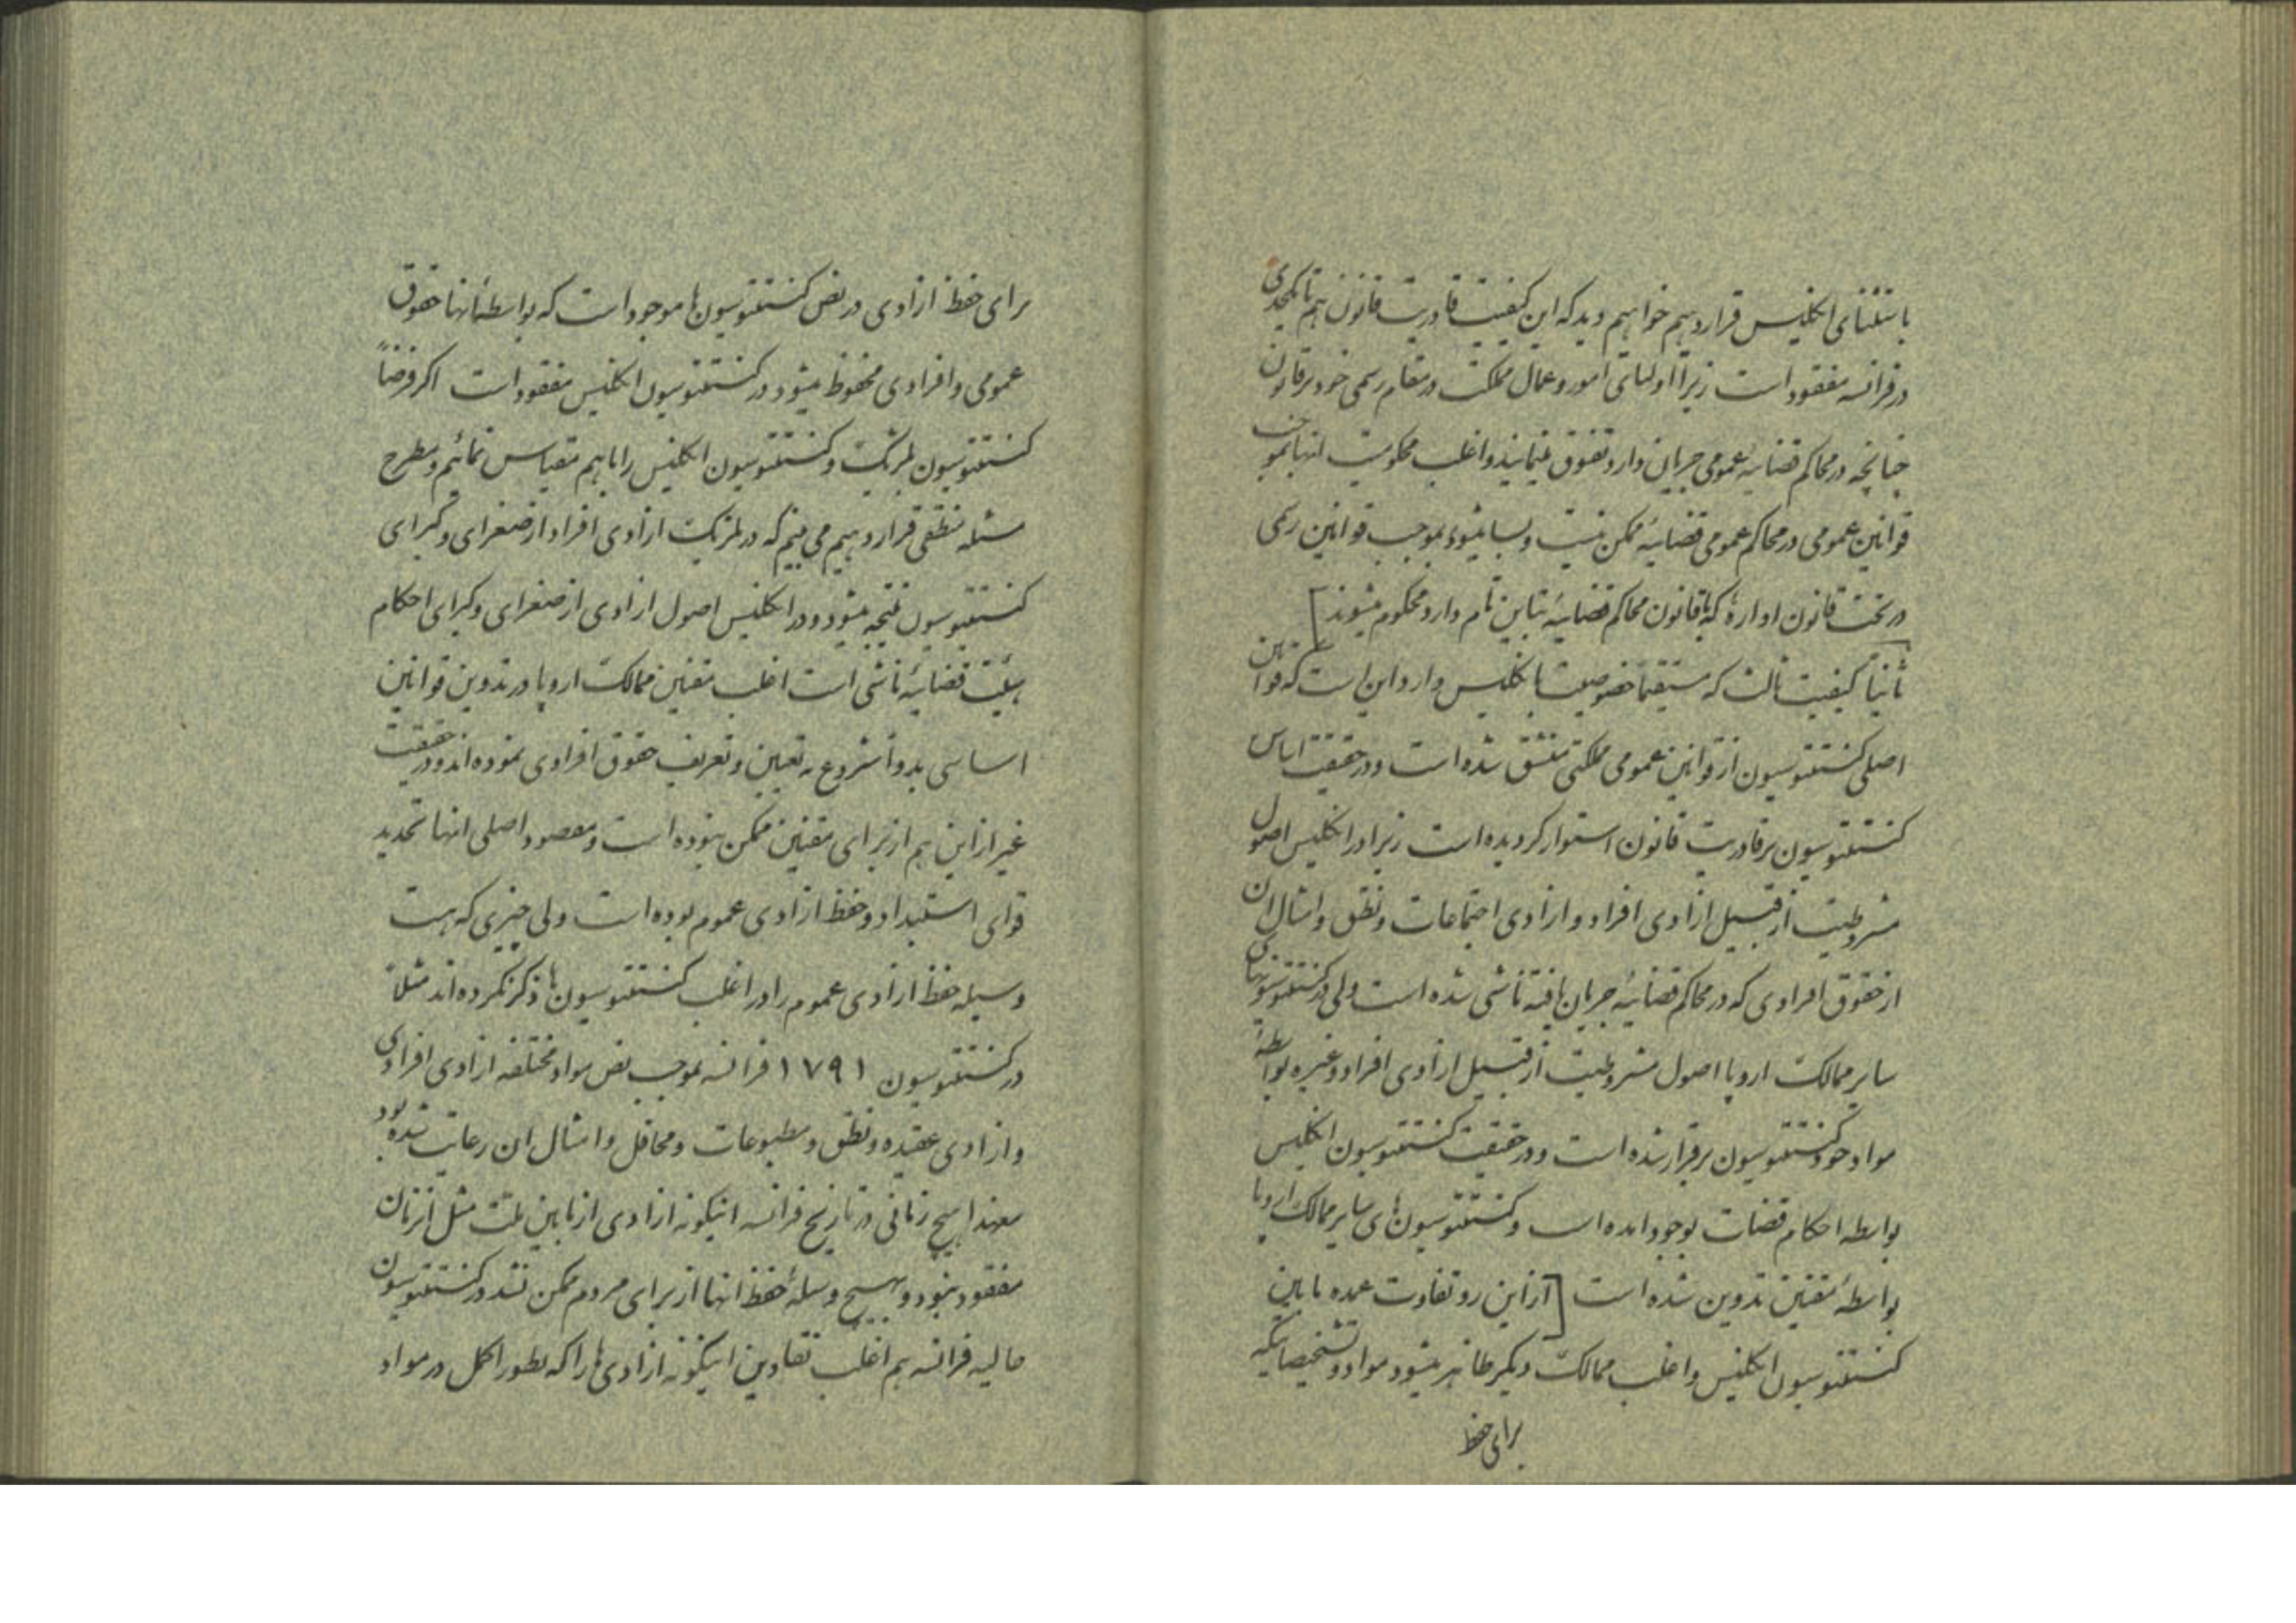 باستثنای انکلیس قرار دهیم خواهیم دید که این کیفیت قادریت قانون هم تا یکحدی
در فرانسه مفقود است زیرا اولیای امور و عمال مملکت در مقام رسمی خود بر قانون
چنانچه در محاکم قضائیه عمومی جریان دارد تفوق مینمایند و اغلب محکومیت انها بموجب
قوانین عمومی در محاکم عمومی قضائیه ممکن نیست و بسا میشود بموجب قوانین رسمی
در تحت قانون ادارهٔ که با قانون محاکم قضائیه تباین تام دارد محکوم میشوند]
ثانیاً کیفیت ثالث که مستقیماً خصوصیت بانکلیس دارد این است که قوانین
اصلی کنستتوسیون از قوانین عمومی مملکتی منشق شده است و در حقیقت اساس
کنستتوسیون بر قادریت قانون استوار کردیده است زیرا در انکلیس اصول
مشروطیت از قبیل ازادی افراد و ازادی اجتماعات و نطق و امثال ان
از حقوق افرادی که در محاکم قضائیه جریان یافته ناشی شده است ولی در کنستتوسیونهای
سایر ممالک اروپا اصول مشروطیت از قبیل ازادی افراد و غیره بواسطهٔ
مواد خود کنستتوسیون برقرار شده است و در حقیقت کنستتوسیون انکلیس
بواسطه احکام قضات بوجود امده است و کنستتوسیون های سایر ممالک اروپا
بواسطهٔ مقنین تدوین شده است [از این رو تفاوت عمده مابین
کنستتوسیون انکلیس و اغلب ممالک دیکر ظاهر میشود مواد و تشخیصاتیکه
برای حفظ
برای حفظ ازادی در نص کنستتوسیون ها موجود است که بواسطهٔ انها حقوق
عمومی و افرادی محفوظ میشود در کنستتوسیون انکلیس مفقود است اکر فرضاً
کنستتوسیون بلژیک و کنستتوسیون انکلیس را باهم مقیاس نمائیم و مطرح
مسئله منطقی قرار دهیم می بینیم که در بلژیک ازادی افراد از صغرای و کبرای
کنستتوسیون نتیجه میشود و در انکلیس اصول ازادی از صغرای و کبرای احکام
هیئت قضائیه ناشی است اغلب مقنین ممالک اروپا در تدوین قوانین
اساسی بدواً شروع به تعیین و تعریف حقوق افرادی نموده اند و در حقیقت
غیر از این هم از برای مقنین ممکن نبوده است و مقصود اصلی انها تحدید
قوای استبداد و حفظ ازادی عموم بوده است ولی چیزی که هست
وسیله حفظ ازادی عموم را در اغلب کنستتوسیون ها ذکر نکرده اند مثلاً
در کنستتوسیون ۱۷۹۱ فرانسه بموجب نص مواد مختلفه ازادی افرادی
و ازادی عقیده و نطق و مطبوعات و محافل و امثال ان رعایت شده بود
معهذا هیچ زمانی در تاریخ فرانسه اینکونه ازادی از مابین ملت مثل انزمان
مفقود نبود و بهیچ وسیلهٔ حفظ انها از برای مردم ممکن نشد در کنستتوسیون
حالیه فرانسه هم اغلب اینکونه ازادی ها را که بطور اکمل در مواد